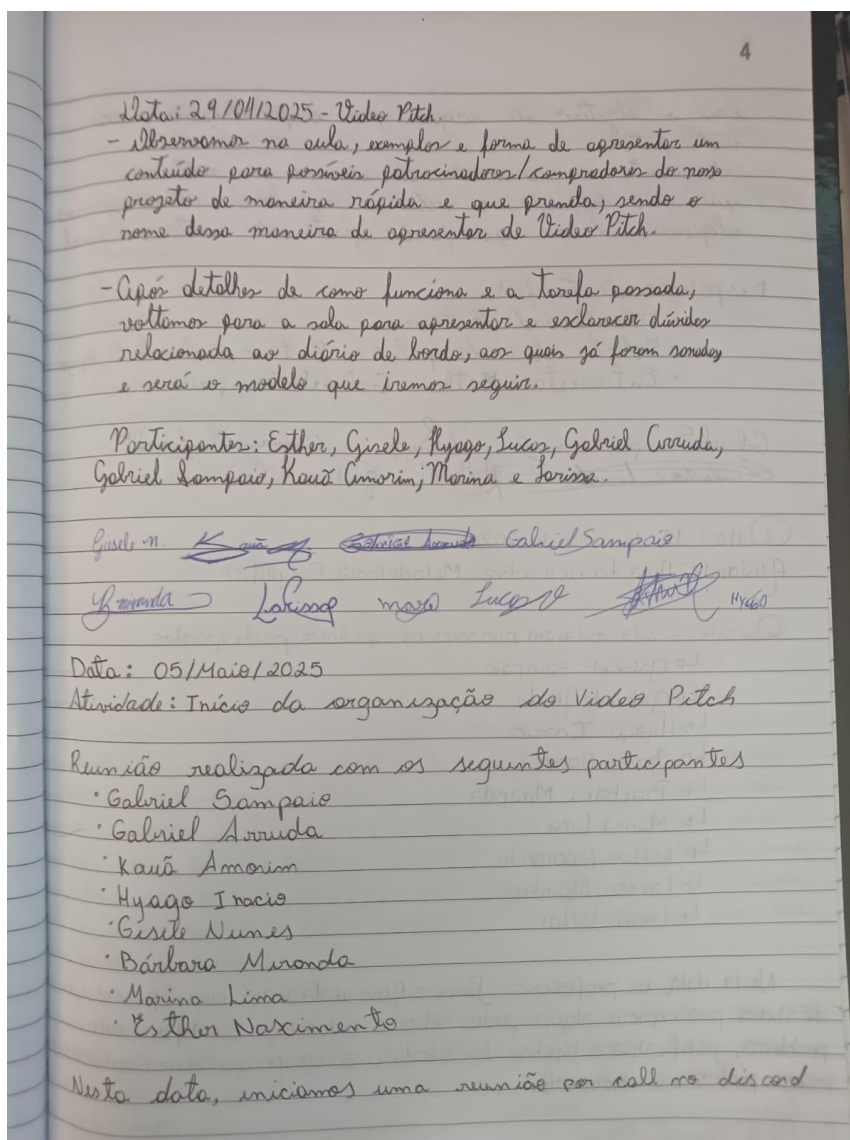 4
Data: 29/04/2025 - Video Pitch.
- Observamos na aula, exemplos e forma de apresentar um
conteúdo para possíveis patrocinadores/compradores do nosso
projeto de maneira rápida e que prenda, sendo o
nome dessa maneira de apresentar de Video Pitch.
- Após detalhes de como funciona e a tarefa passada,
voltamos para a sala para apresentar e esclarecer dúvidas
relacionada ao diário de bordo, aos quais já foram sanadas
e será o modelo que iremos seguir.
Participantes: Esther, Gisele, Hyago, Lucas, Gabriel Arruda,
Gabriel Sampaio, Kauã Amorim, Marina e Larissa.
Gisele n. Kauã Gabriel Arruda Gabriel Sampaio
Bmiranda Larissa Lucas Hyago
Data: 05/Maio/2025
Atividade: Início da organização do Video Pitch
Reunião realizada com os seguintes participantes
· Gabriel Sampaio
· Gabriel Arruda
· Kauã Amorim
· Hyago Inacio
· Gisele Nunes
· Bárbara Miranda
· Marina Lima
· Esther Nascimento
Nesta data, iniciamos uma reunião por call no discord